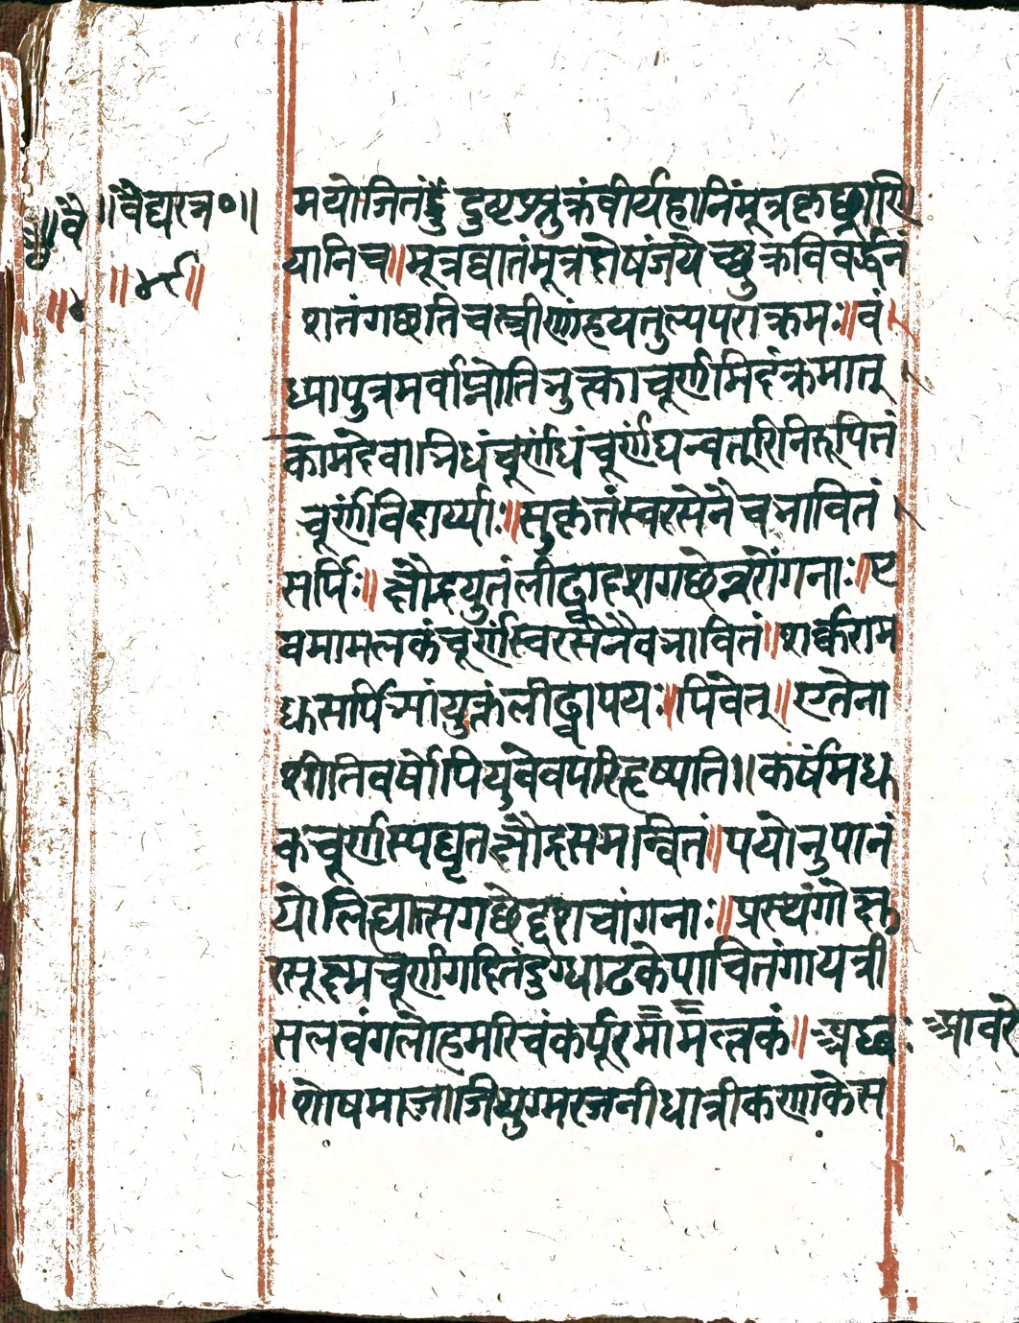 ॥वैद्यरत्न०॥
॥४८॥
मयोजितं दुष्टशुक्रंवीर्यहानिंमूत्रकृछ्राणि
यानिच॥मूत्रघातंमूत्रदोषंजयेच्छुक्रविवर्द्धनं
शतंगछतिचस्त्रीणांहयतुल्यपराक्रमः॥वं
ध्यापुत्रमवाप्नोतिभुक्त्वाचूर्णमिदंक्रमात्
कामदेवाभिधंचूर्णंधंचूर्णंधन्वतरिनिरुपितं
चूर्णंविदार्य्याः॥सुकृतंस्वरसेनैवभावितं
सर्पिः॥क्षौद्रयुतंलीढ्वादशगछेन्नरोंगनाः॥ए
वमामलकंचूर्णंस्वरसेनैवभावितं॥शर्क्कराम
धुसर्पिर्भायुक्तंलीढ्वापयः॥पिवेत्॥एतेना
शीतिवर्षोपियुवेवपरिहृष्यति॥कर्षंमधु
कचूर्णस्यघृतक्षौद्रसमन्वितं॥पयोनुपानं
योलिह्यात्सगछेद्दशचांगनाः॥प्रस्थंगोक्षु
रसूक्ष्मचूर्णगदितंदुग्धाढकेपाचितंगायत्री
सलवंगलोहमरिचंकर्पूरमामन्लकं॥
॥शोषमाजाजियुग्मरजनीधात्रीकणाकेस